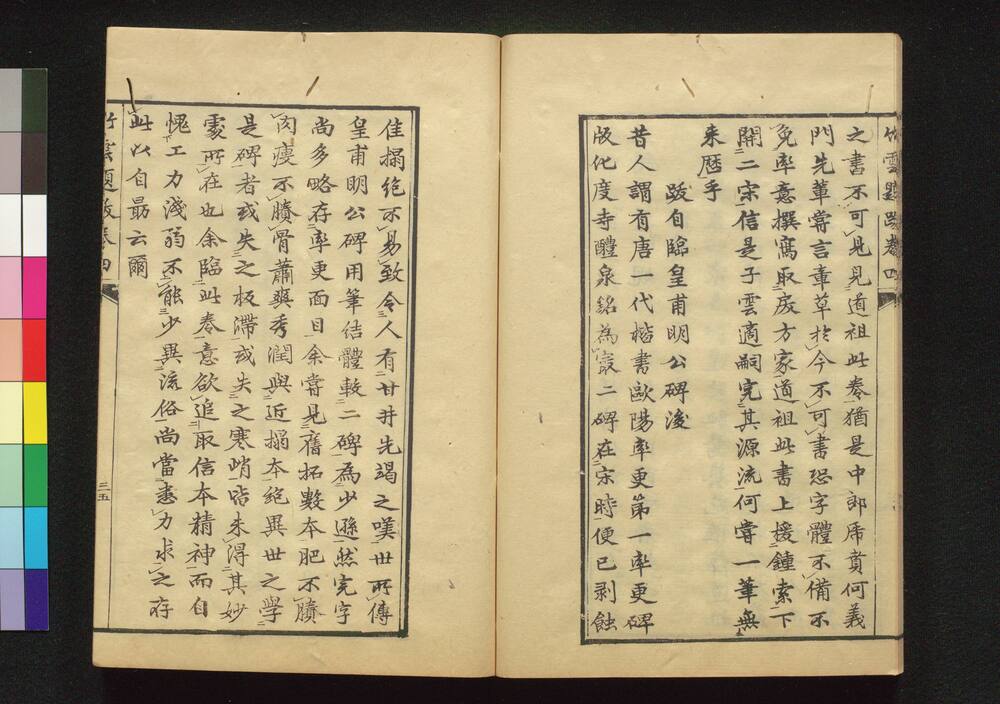 竹雲題跋卷四
之書不可見見道祖此卷猶是中郎席賁何義
門先輩嘗言章草於今不可書恐字體不備不
免率意撰寫取戾方家道祖此書上援鍾索下
開二宋信是子雲適嗣完其源流何嘗一筆無
来歷乎
跋自臨皇甫明公碑後
昔人謂有唐一代楷書歐陽率更第一率更碑
版化度寺醴泉銘為最二碑在宋時便已剥蝕
佳搨絶不易致令人有甘井先竭之嘆世所傳
皇甫明公碑用筆结體較二碑為少遜然完字
尚多略存率更面目余嘗見舊拓數本肥不賸
肉瘦不賸骨蕭爽秀潤與近搨本絶異世之學
是碑者或失之板滯或失之寒峭皆未得其妙
處所在也余臨此卷意欲追取信本精神而自
愧工力淺弱不能少異流俗尚當悉力求之存
此以自勗云爾
竹雲題跋卷四
三五